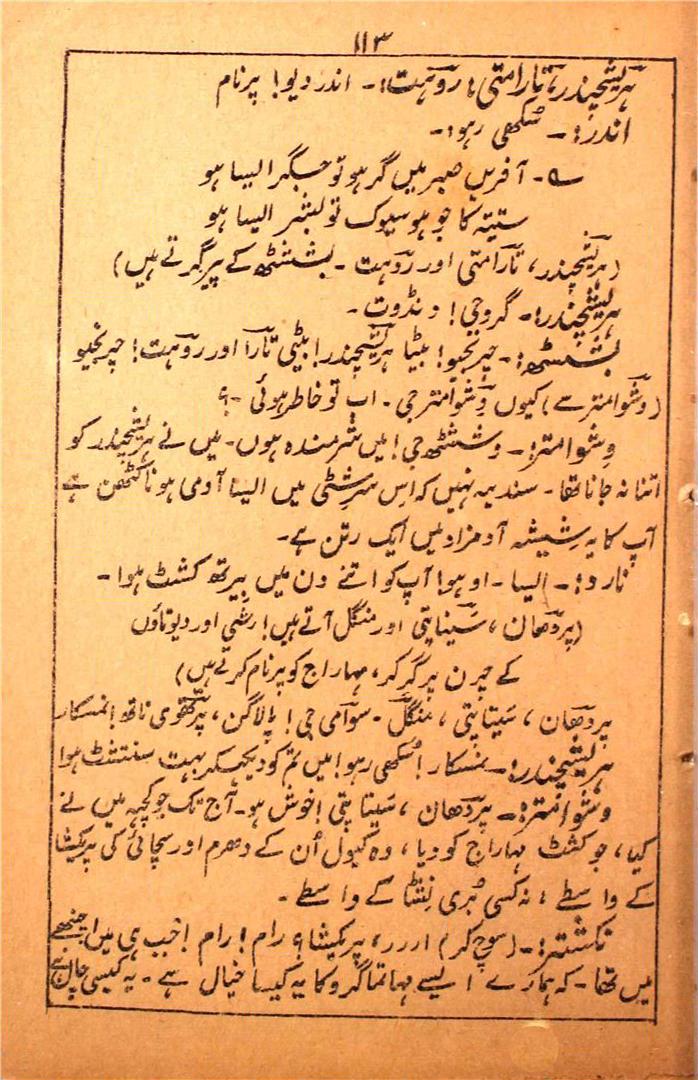 ۱۱۳
ہریشچندر، تارامتی، روہت:۔ اندر دیو! پرنام
اندر:۔ سُکھی رہو:۔
ہ۔ آفریں صبر میں گر ہو تو جگر ایسا ہو
ستیہ کا جو ہو سیوک تو بشر ایسا ہو
(ہریشچندر، تارامتی اور روہت۔ بششٹھ کے پیر گرتے ہیں)
ہریشچندر:۔ گروجی! ونڈوت۔
بششٹھ:۔ چرنجیو! بیٹا ہریشچندر! بیٹی تارا اور روہت! چرنجیو
(وشوامتر سے) کیوں وِشوامتر جی۔ اب تو خاطر ہوئی۔؟
وِشوامتر:۔ وششٹھ جی! میں شرمندہ ہوں۔ میں نے ہریشچندر کو
اتنا نہ جانا تھا۔ سندیہہ نہیں کہ اس سرِشٹی میں ایسا آدمی ہونا کٹھن ہے
آپ کا یہ شِیشہ آدمزاد میں ایک رتن ہے۔
نارد:۔ ایسا۔ اوہو! آپ کو اتنے دن میں بیرتھ کشٹ ہوا۔
(پردھان، سَیناپتی اور منگل آتے ہیں! رشی اور دیوتاؤں
کے چرن پر گر کر، مہاراج کو پرنام کرتے ہیں)
پردھان، سَیناپتی، منگل۔ سوآمی جی! پالاگن، پرتھوی ناتھ! نمسکار
ہریشچندر:۔ نمسکار! سُکھی رہو! میں تم کو دیکھکر بہت سنتشٹ ہوا
وشوامتر:۔ پردھان، سَیناپتی! خوش ہو۔ آج تک جو کچھ میں نے
کیا، جو کشٹ مہاراج کو دیا، وہ کیول اُن کے دھرم اور سچائی کی پریکشا
کے واسطے، نہ کسی بُری نِشٹا کے واسطے۔
نکشتر:۔ (سوچ کر) اررر، پریکشا؟ رام! رام! جب ہی میں اچنبھے
میں تھا۔ کہ ہمارے ایسے مہاتما گرو کا یہ کیسا خیال ہے۔ یہ کیسی چال ہے